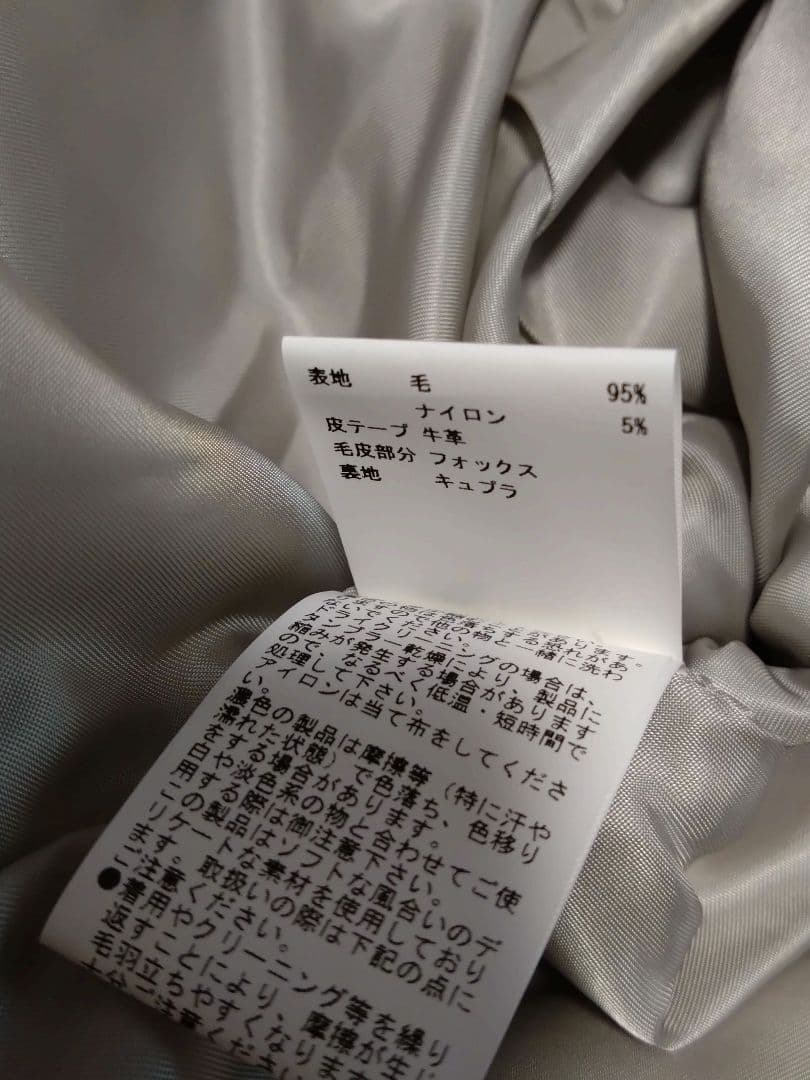 表地 毛 95%
ナイロン 5%
皮テープ 牛革
毛皮部分 フォックス
裏地 キュプラ
ないでください。
ドライクリーニングの場合は、
タンブラー乾燥により、製品に
縮みが発生する場合があります
ので、なるべく低温・短時間で
処理して下さい。
アイロンは当て布をしてくださ
い。
濃色の製品は摩擦等（特に汗や
濡れた状態）で色落ち、色移り
をする場合があります。
白や淡色系の物と合わせてご使
用する際は御注意下さい。
この製品はソフトな風合いのデ
リケートな素材を使用しており
ます。取扱いの際は下記の点に
ご注意ください。
●着用やクリーニング等を繰り
返すことにより、摩擦が生じ
毛羽立ちやすくなります